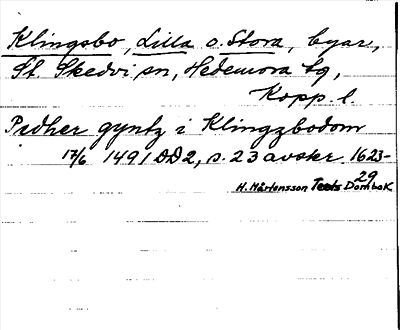 Klingsbo, Lilla o. Stora, byar,
St. Skedvi sn, Hedemora tg,
Kopp. l.
Pedher gyntz i Klingzbodom
17/6 1491 DD2, s. 23 avskr. 1623-
29
H. Mårtensson Teets Dombok